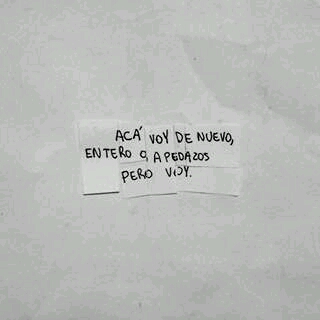 ACÁ VOY DE NUEVO,
ENTERO O, A PEDAZOS
PERO VOY.